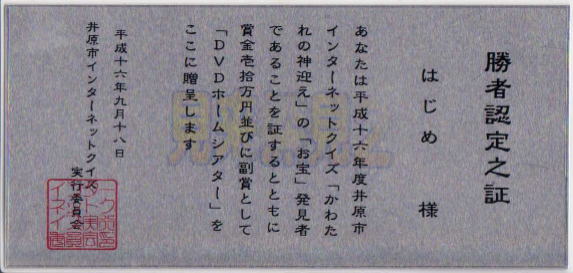 勝者認定之証
はじめ 様
あなたは平成十六年度井原市
インターネットクイズ「かわた
れの神迎え」の「お宝」発見者
であることを証するとともに
賞金壱拾万円並びに副賞として
「DVDホームシアター」を
ここに贈呈します
平成十六年九月十八日
井原市インターネットクイズ
実行委員会